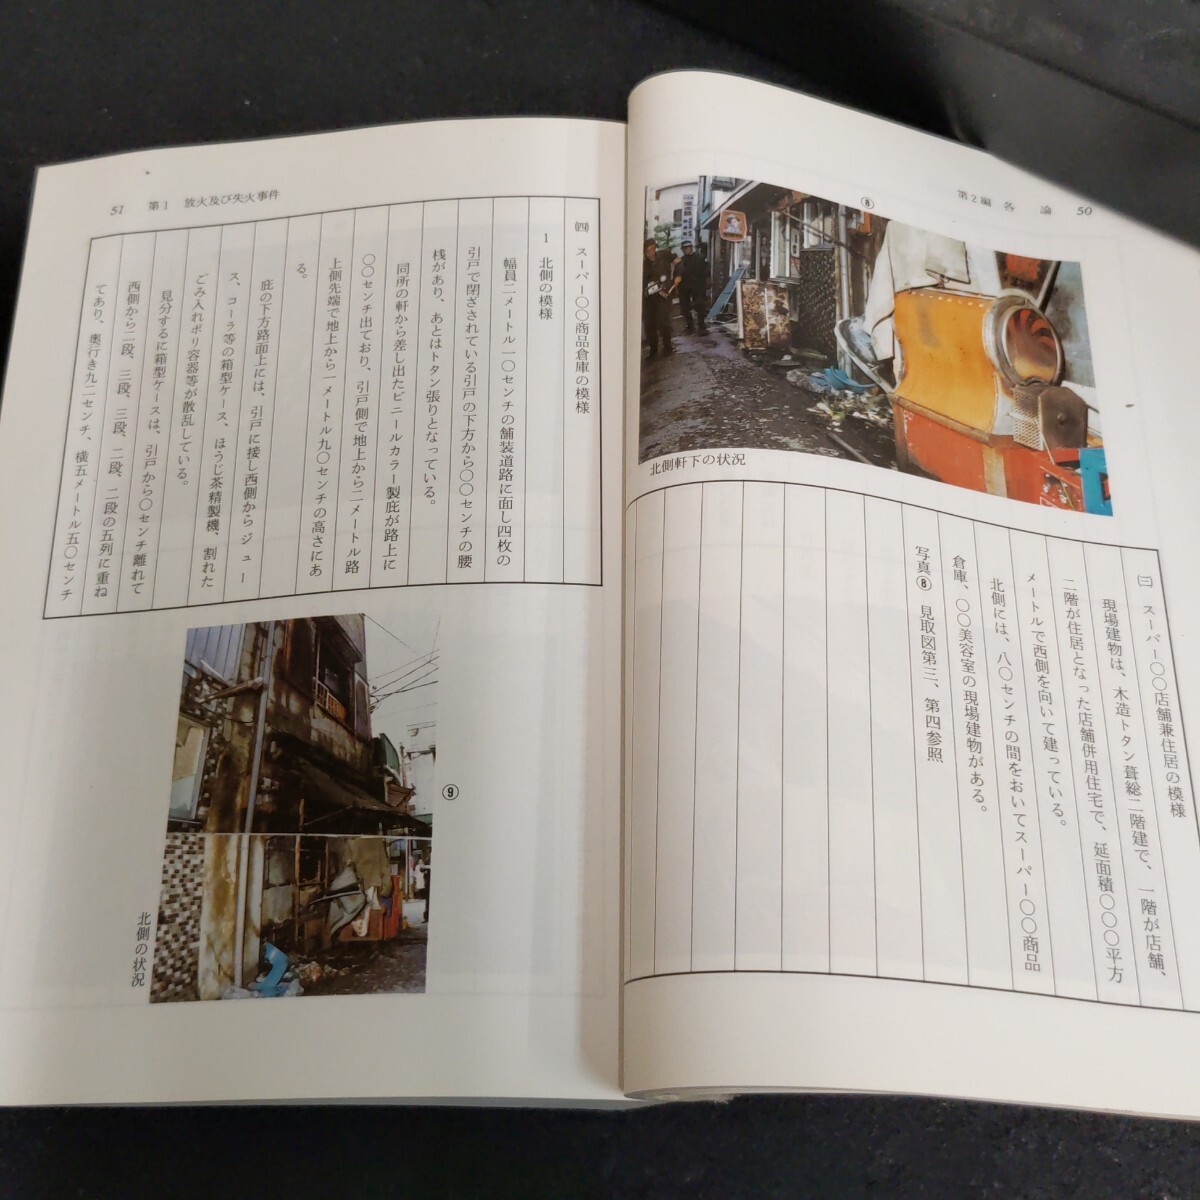 第2編 各 論 50
⑧
北側軒下の状況
㈢ スーパー〇〇店舗兼住居の模様
現場建物は、木造トタン葺総二階建で、一階が店舗、
二階が住居となった店舗併用住宅で、延面積〇〇〇平方
メートルで西側を向いて建っている。
北側には、八〇センチの間をおいてスーパー〇〇商品
倉庫、〇〇美容室の現場建物がある。
写真⑧ 見取図第三、第四参照
51 第1 放火及び失火事件
㈣ スーパー〇〇商品倉庫の模様
1 北側の模様
幅員二メートル一〇センチの舗装道路に面し四枚の
引戸で閉ざされている引戸の下方から〇〇センチの腰
桟があり、あとはトタン張りとなっている。
同所の軒から差し出たビニールカラー製庇が路上に
〇〇センチ出ており、引戸側で地上から二メートル路
上側先端で地上から一メートル九〇センチの高さにあ
る。
庇の下方路面上には、引戸に接し西側からジュー
ス、コーラ等の箱型ケース、ほうじ茶精製機、割れた
ごみ入れポリ容器等が散乱している。
見分するに箱型ケースは、引戸から〇センチ離れて
西側から二段、三段、三段、二段、二段の五列に重ね
てあり、奥行き九二センチ、横五メートル五〇センチ
⑨
北側の状況